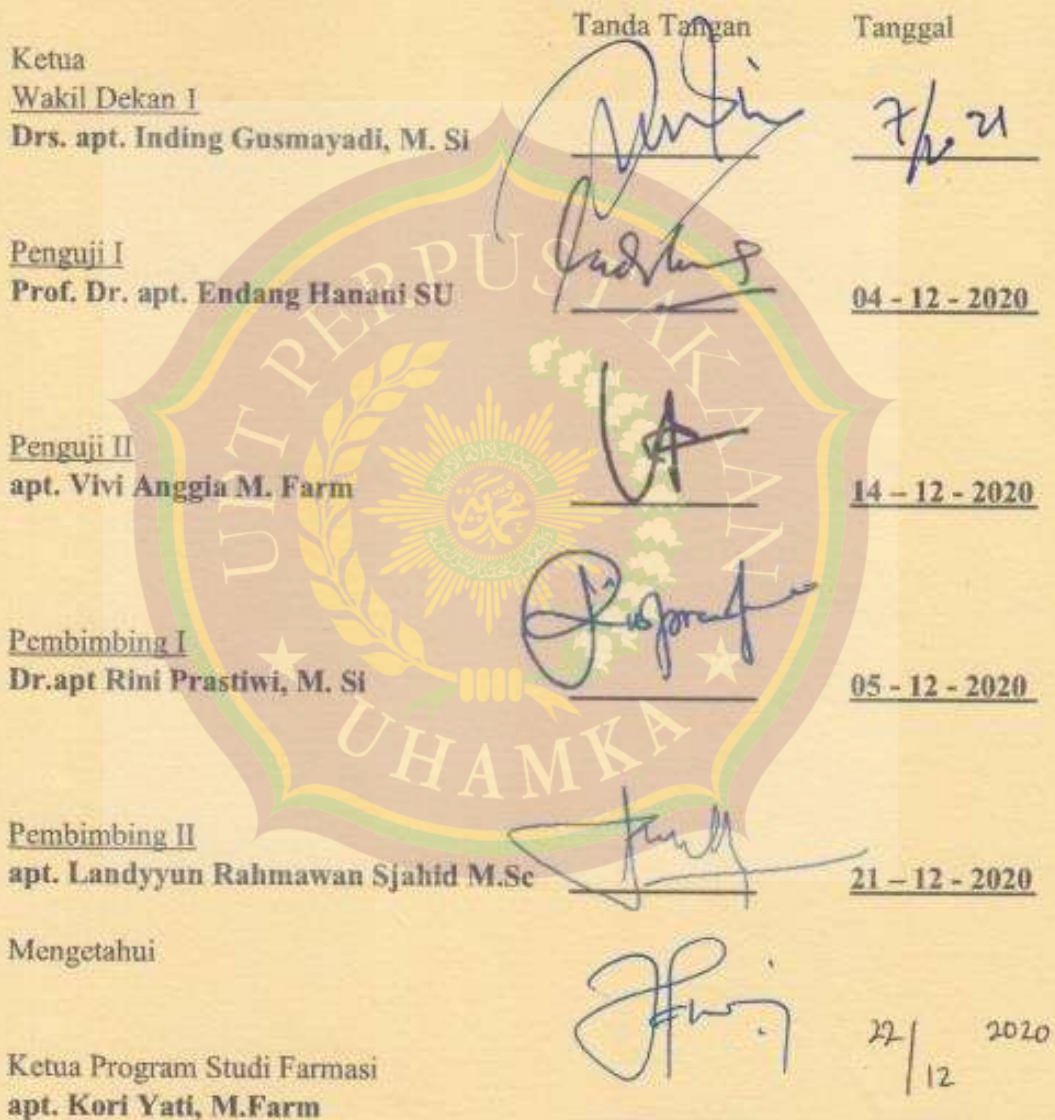 Tanda Tangan Tanggal
Ketua
Wakil Dekan I
Drs. apt. Inding Gusmayadi, M. Si
21
Penguji I
Prof. Dr. apt. Endang Hanani SU 04 - 12 - 2020
Penguji II
apt. Vivi Anggia M. Farm 14 – 12 - 2020
Pembimbing I
Dr.apt Rini Prastiwi, M. Si 05 - 12 - 2020
Pembimbing II
apt. Landyyun Rahmawan Sjahid M.Sc 21 – 12 - 2020
Mengetahui
22/12 2020
Ketua Program Studi Farmasi
apt. Kori Yati, M.Farm
UPT PERPUSTAKAAN
UHAMKA